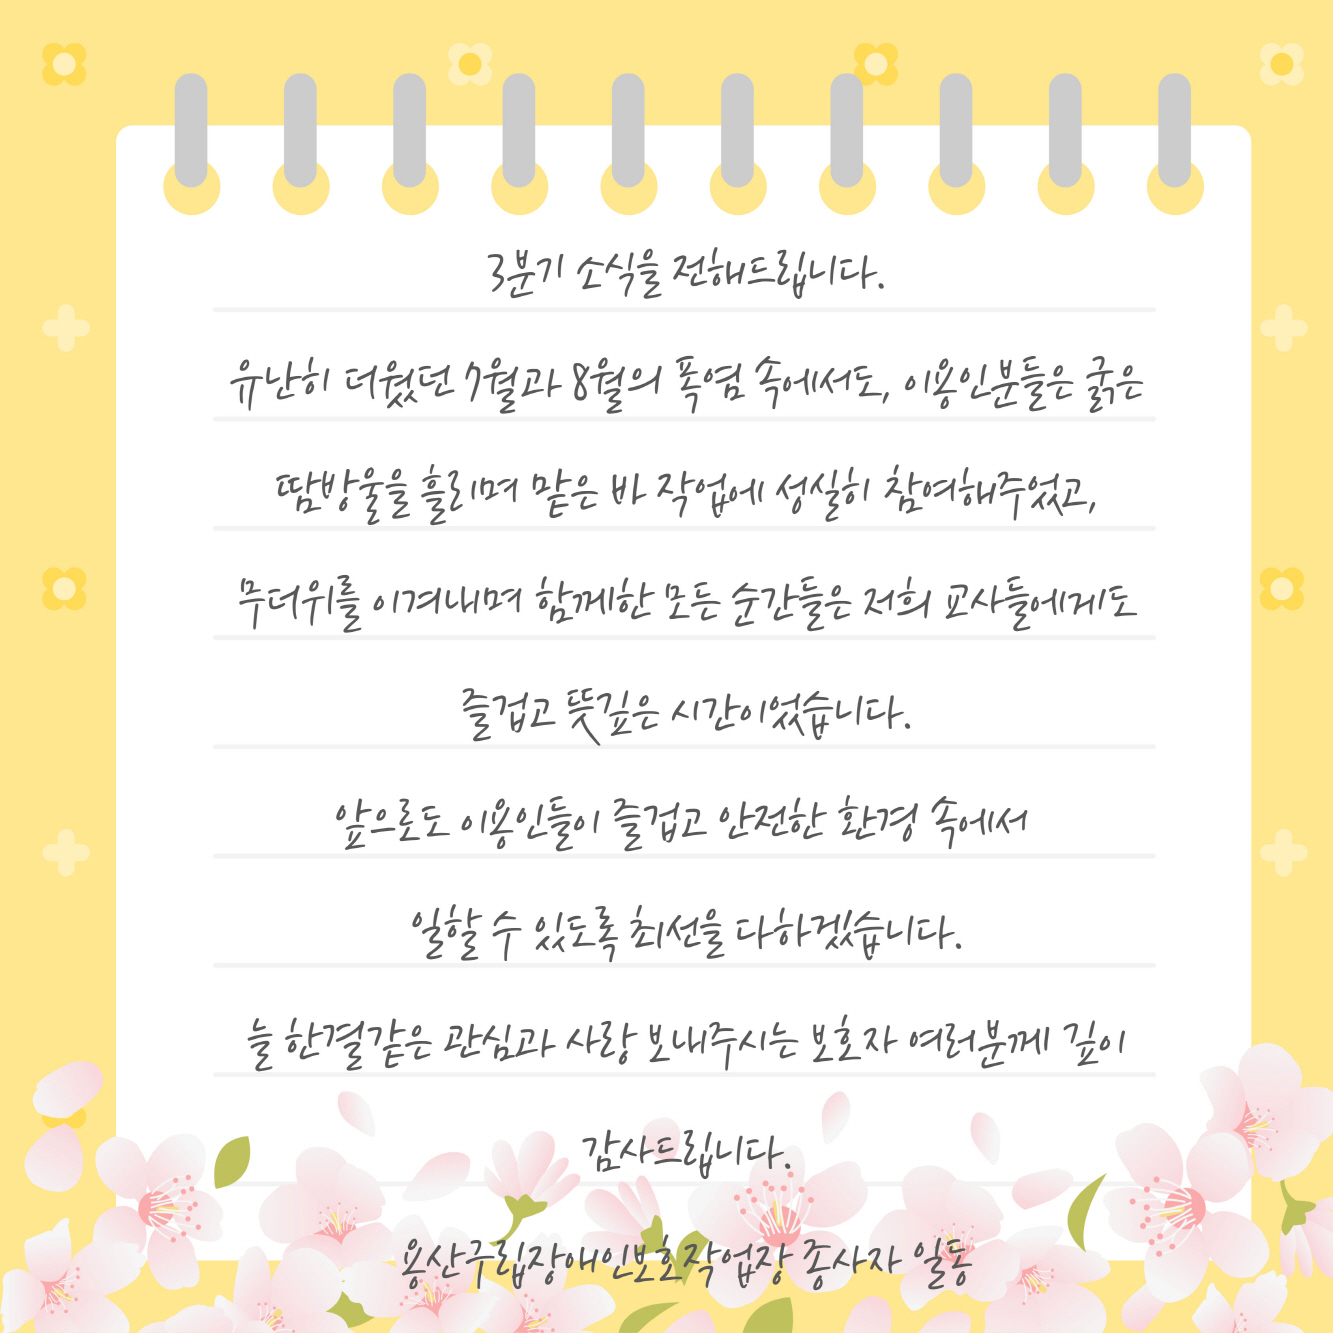 3분기 소식을 전해드립니다.
유난히 더웠던 7월과 8월의 폭염 속에서도, 이용인분들은 굵은
땀방울을 흘리며 맡은 바 작업에 성실히 참여해주었고,
무더위를 이겨내며 함께한 모든 순간들은 저희 교사들에게도
즐겁고 뜻깊은 시간이었습니다.
앞으로도 이용인들이 즐겁고 안전한 환경 속에서
일할 수 있도록 최선을 다하겠습니다.
늘 한결같은 관심과 사랑 보내주시는 보호자 여러분께 깊이
감사드립니다.
용산구립장애인보호작업장 종사자 일동